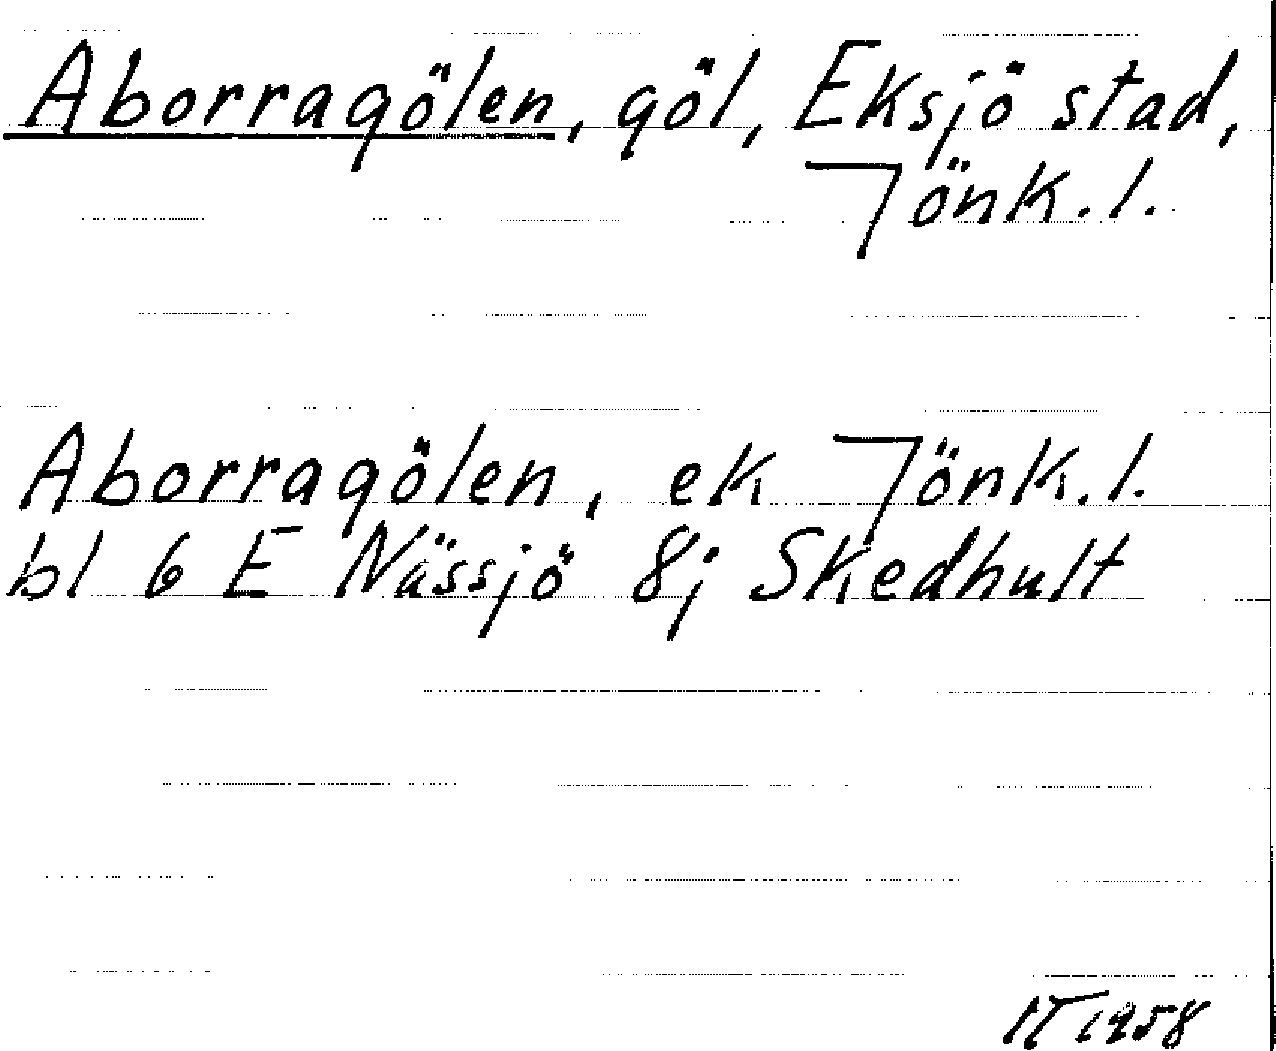 Aborragölen, göl, Eksjö stad,
Jönk.l.
Aborragölen, ek Jönk.l.
bl 6 E Nässjö 8j Skedhult
1958